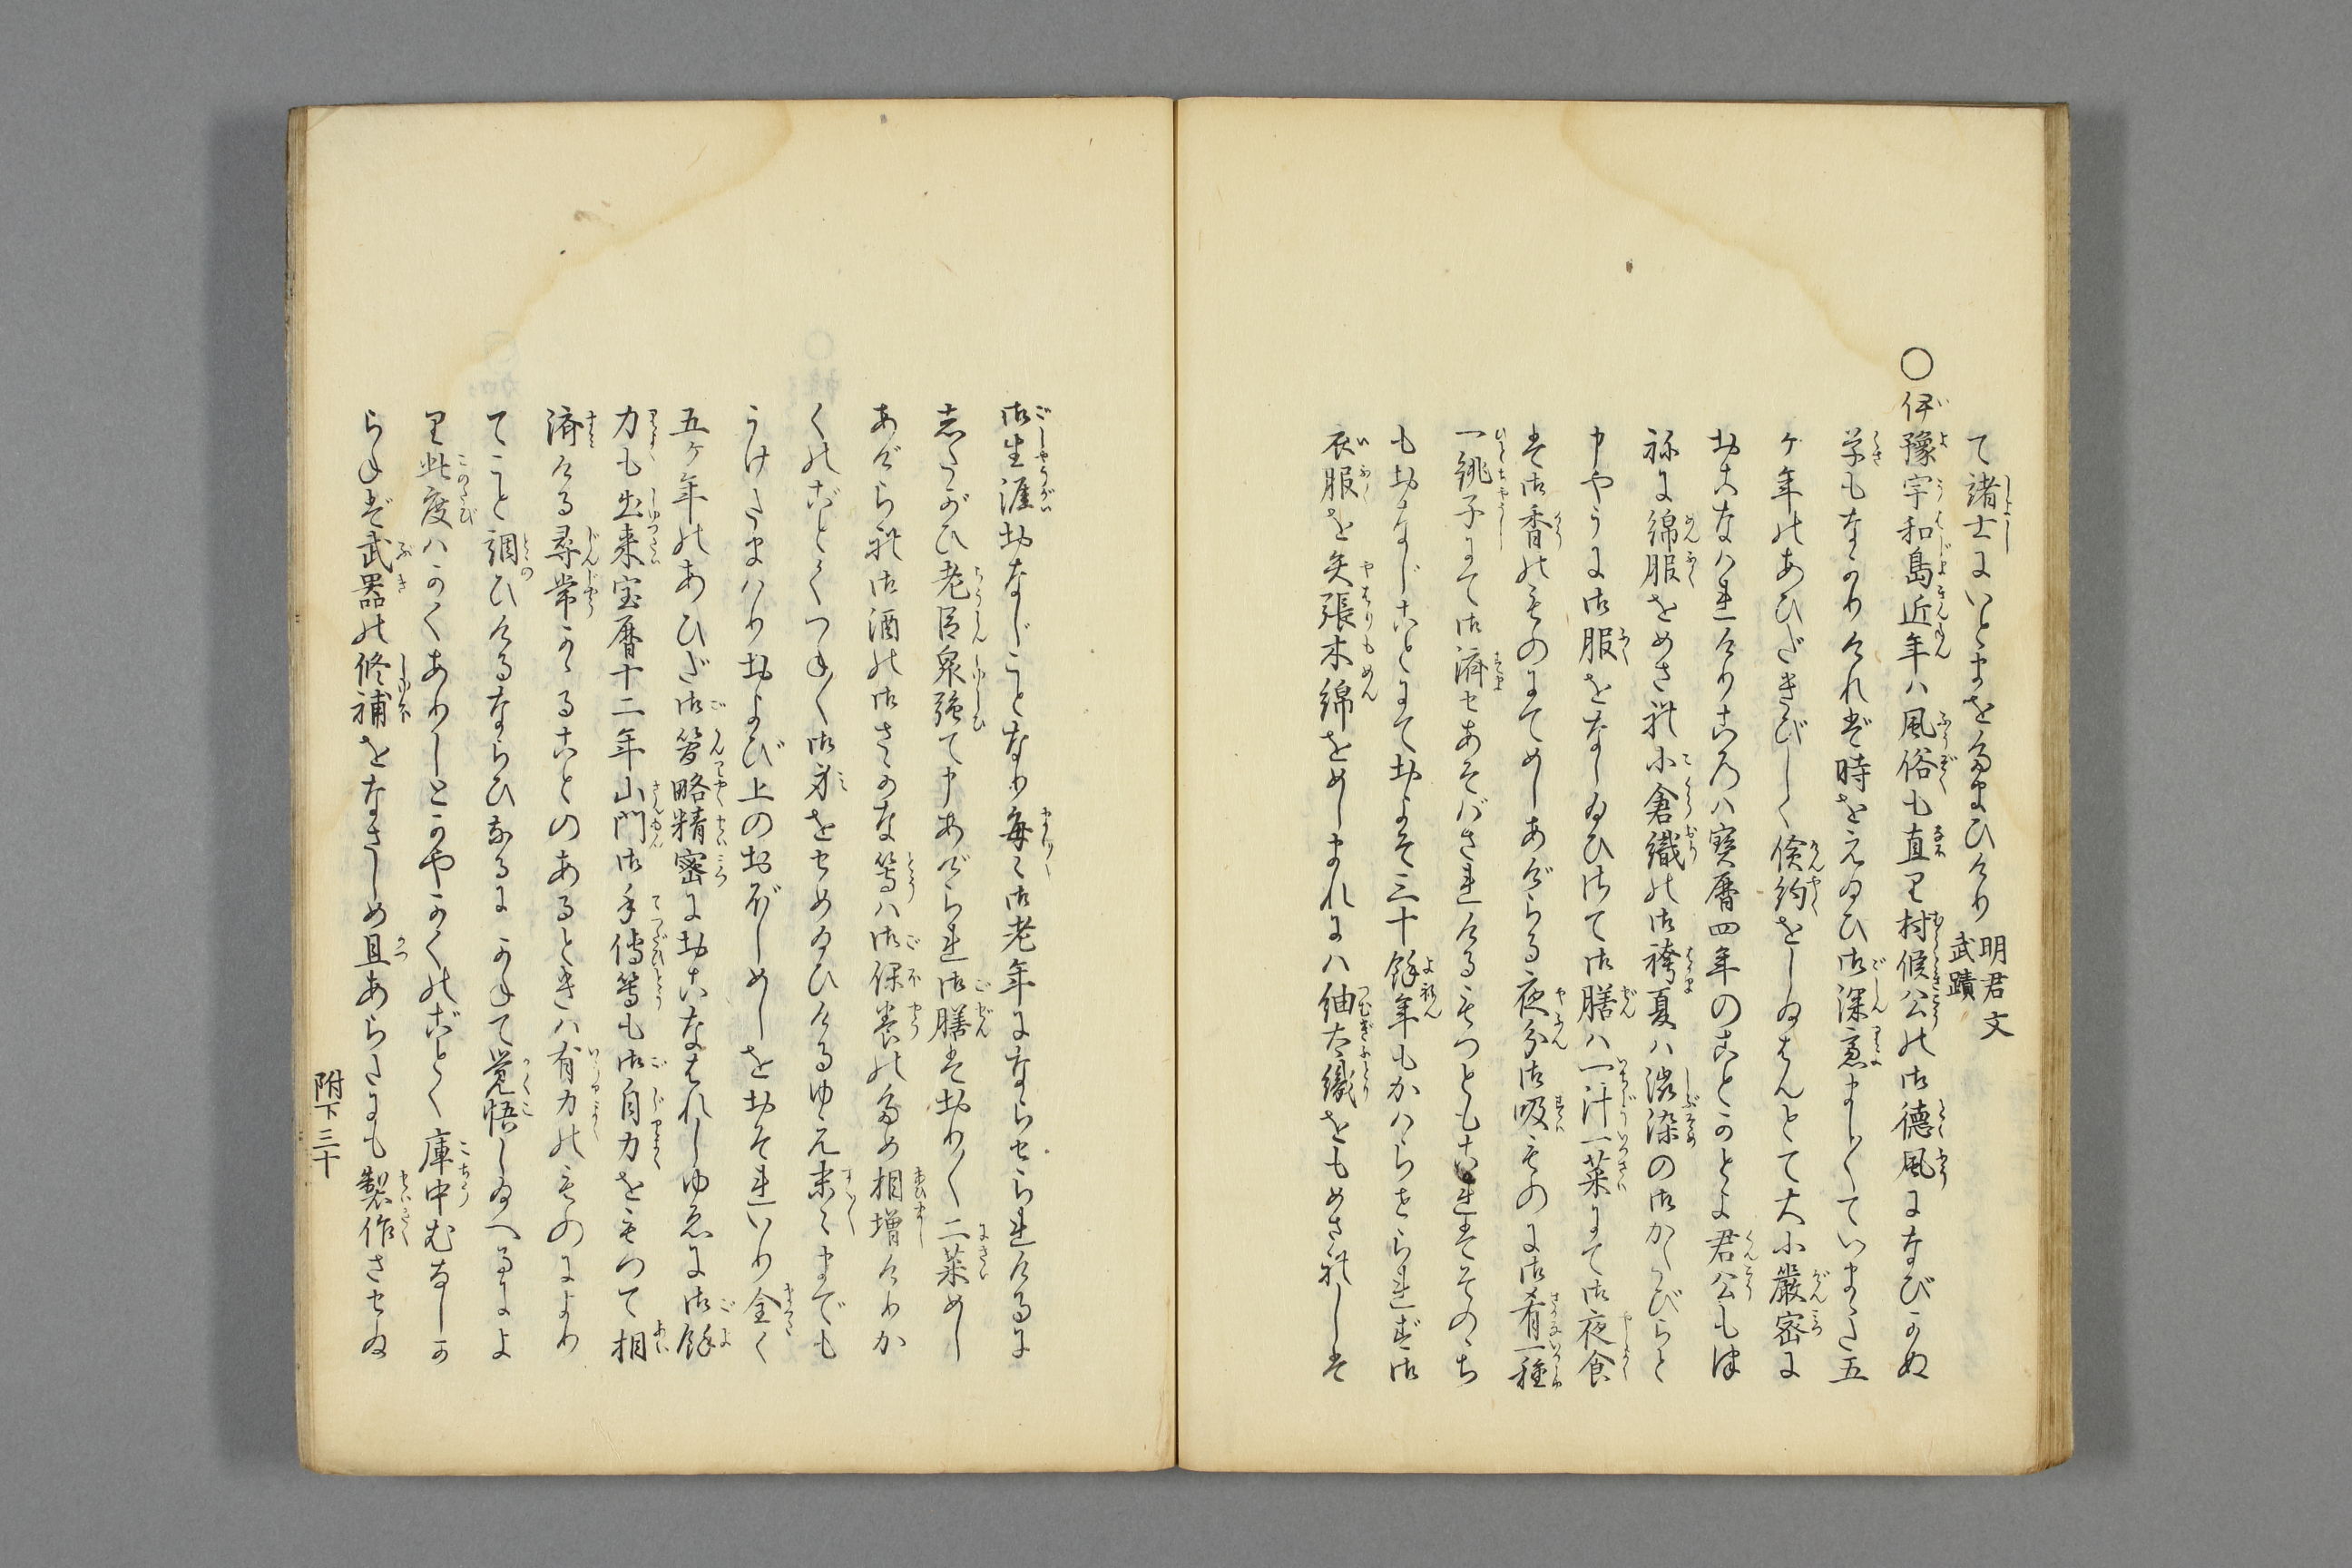 て諸士にいとまを給ひけり 明君文武蹟
○伊豫宇和島近年ハ風俗も直り村候公の御徳風になびかぬ
草もなかりけれど時をえ給ひ御深慮ましくていまた五
ケ年のあひだきびしく倹約をし給はんとて大小嚴密に
おこなハれけりころハ寳暦四年のことかとよ君公も津
袮に綿服をめされ小倉織の御袴夏ハ澁染の御かたびらと
申やうに御服をなし給ひ御膳ハ一汁一菜にて御夜食
は御香のものにてめしあがらる夜分御吸ものに御肴一種
一銚子にて御済せあそバされけるもつともこれはそのゝち
もおなじことにておよそ三十餘年もかハらせられず御
衣服を矢張木綿をめしまれにハ紬太織をもめされしは
御生涯おなじことなり毎々御老年にならせられけるに
志たがひ老臣衆強て申あげられ御膳はおりく二菜めし
あがられ御酒の御さかな等ハ御保養の為め相増けりか
くのごとくつねく御身をせめ給ひけるゆゑ末々までも
うけたまハりおよび上のおぼしめしをおそれいり全く
五ケ年のあひだ御簡略精密におこなはれしゆゑに御餘
力も出来宝暦十二年山門御手傳等も御自力をもつて相
済ける尋常かゝることのあるときハ有力のものによりてこと
調ひけるならひなるにかねて覚悟し給へるによ
り此度ハかくありしとかやかくのごとく庫中むなしか
らねど武器の修補をなさしめ且あらたにも製作させ給
附下 三十